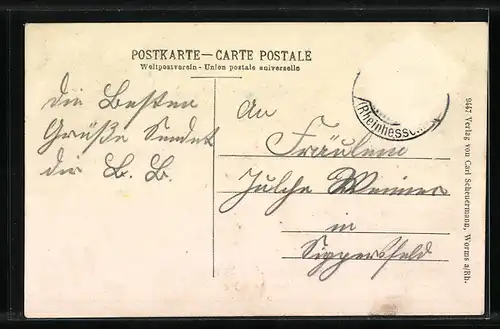 POSTKARTE — CARTE POSTALE
Weltpostverein - Union postale universelle
Die Besten
Grüße Sendet
dir B. B.
An
Fräulein
Julche Weimer
in
Sippersfeld
(Rheinhess
2447 Verlag von Carl Scheuermann, Worms a/Rh.